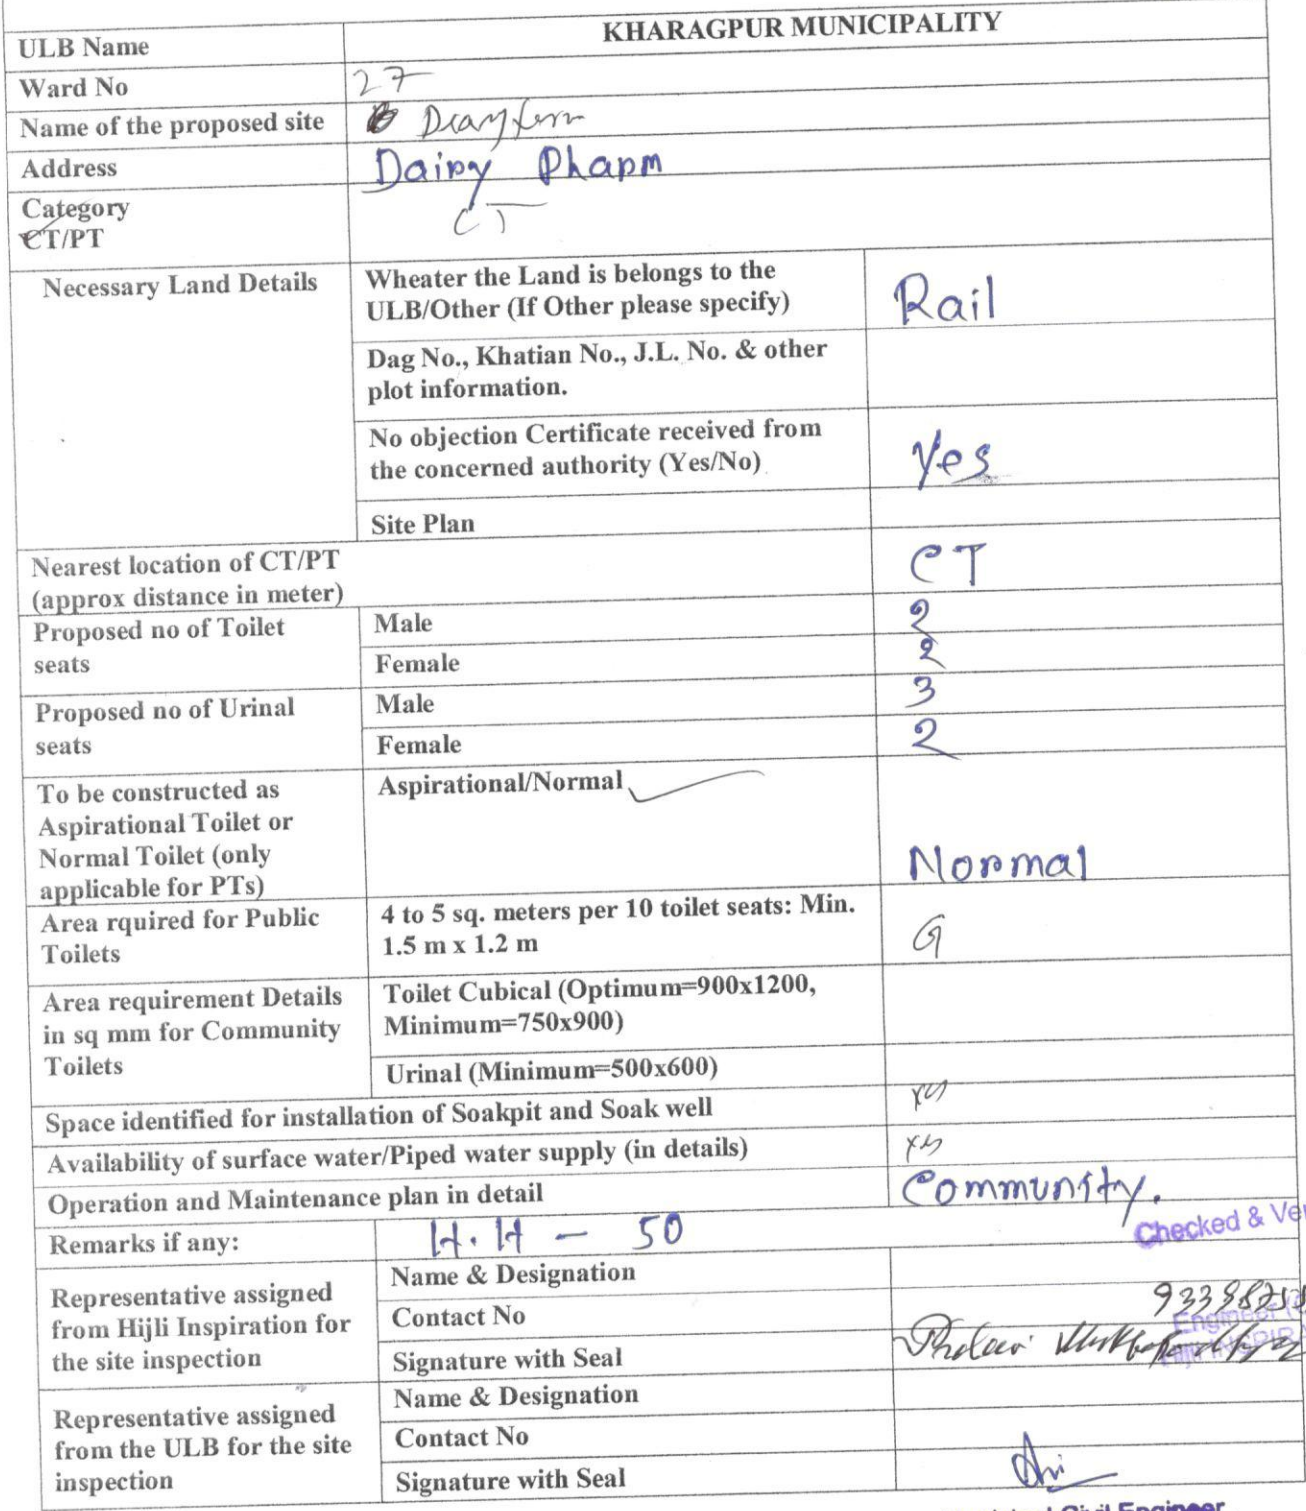 ULB Name
KHARAGPUR MUNICIPALITY
Ward No
27
Name of the proposed site
Address
Dairy Pharm
Category
CT/PT
CT
Necessary Land Details
Wheater the Land is belongs to the
ULB/Other (If Other please specify)
Rail
Dag No., Khatian No., J.L. No. & other
plot information.
No objection Certificate received from
the concerned authority (Yes/No)
Yes
Site Plan
Nearest location of CT/PT
(approx distance in meter)
CT
Proposed no of Toilet
seats
Male
2
Female
2
Proposed no of Urinal
seats
Male
3
Female
2
To be constructed as
Aspirational Toilet or
Normal Toilet (only
applicable for PTs)
Aspirational/Normal
Normal
Area rquired for Public
Toilets
4 to 5 sq. meters per 10 toilet seats: Min.
1.5 m x 1.2 m
Area requirement Details
in sq mm for Community
Toilets
Toilet Cubical (Optimum=900x1200,
Minimum=750x900)
Urinal (Minimum=500x600)
Space identified for installation of Soakpit and Soak well
yes
Availability of surface water/Piped water supply (in details)
yes
Operation and Maintenance plan in detail
Community.
Remarks if any:
H.H - 50
Checked & Ver
Representative assigned
from Hijli Inspiration for
the site inspection
Name & Designation
Contact No
Engineer
Signature with Seal
Hijli INSPIRA
Representative assigned
from the ULB for the site
inspection
Name & Designation
Contact No
Signature with Seal
Civil Engineer